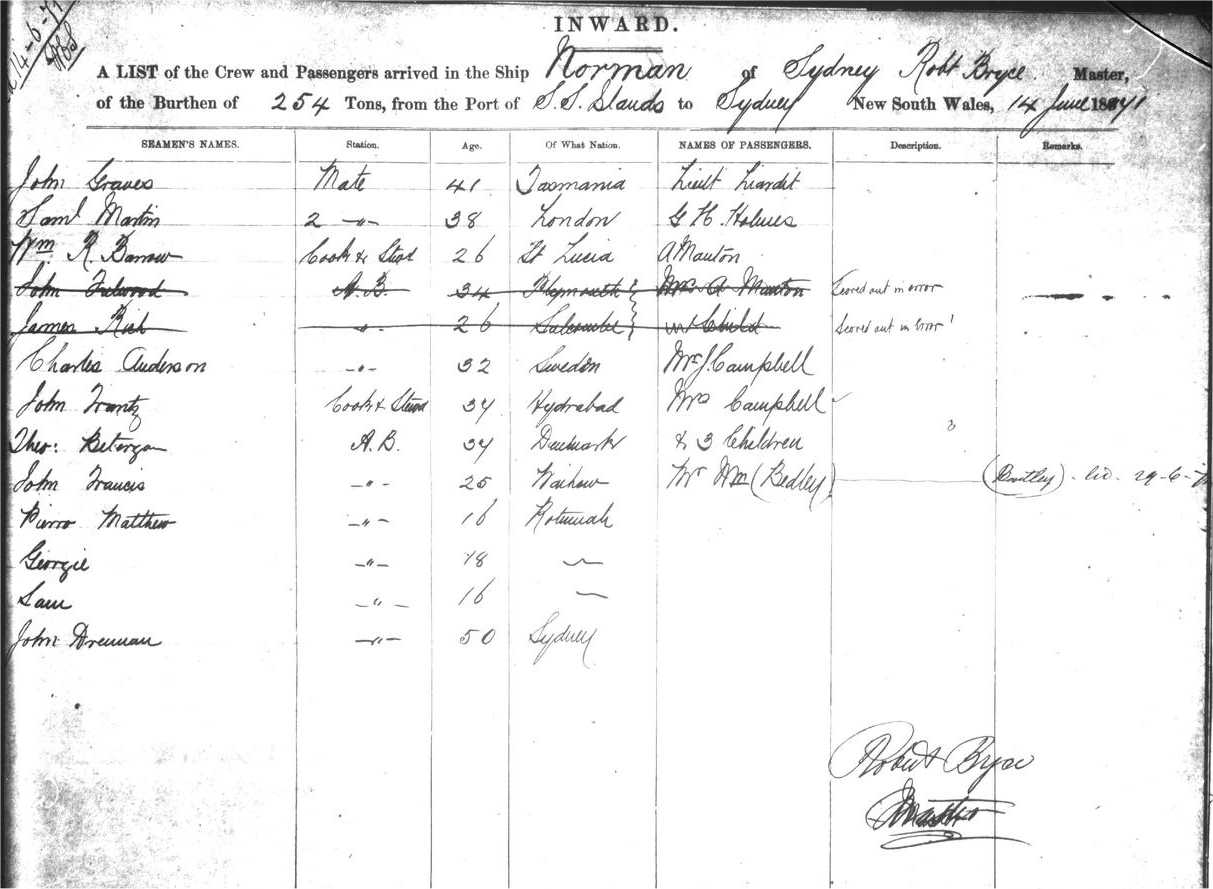 14-6-71
INWARD.
A LIST of the Crew and Passengers arrived in the Ship Norman of Sydney Robt Bryce Master,
of the Burthen of 254 Tons, from the Port of S. S. Islands to Sydney New South Wales, 14 June 1871
SEAMEN'S NAMES. Station. Age. Of What Nation. NAMES OF PASSENGERS. Description. Remarks.
John Graves Mate 41 Tasmania Lieut Liardet
Saml Martin 2 -"- 38 London G H Holmes
Wm. R. Barrow Cook & Stwd 26 St Lucia A Manton
John Fulwood A.B. 34 Plymouth Mrs A Manton Scored out in error
James Rich -"- 26 Salcombe Child Scored out in Error
Charles Anderson -"- 32 Sweden Mr J. Campbell
John Frantz Cook & Stewd 34 Hydrabad Mrs Campbell
Theo: A.B. 34 Denmark & 3 Children
John Francis -"- 25 Mr Wm (Bedley) 29-6-
Matthew -"- 16 Rotumah
Georgie -"- 18 -
Sam -"- 16 -
John Drennan -"- 50 Sydney
Robert Bryce
Master